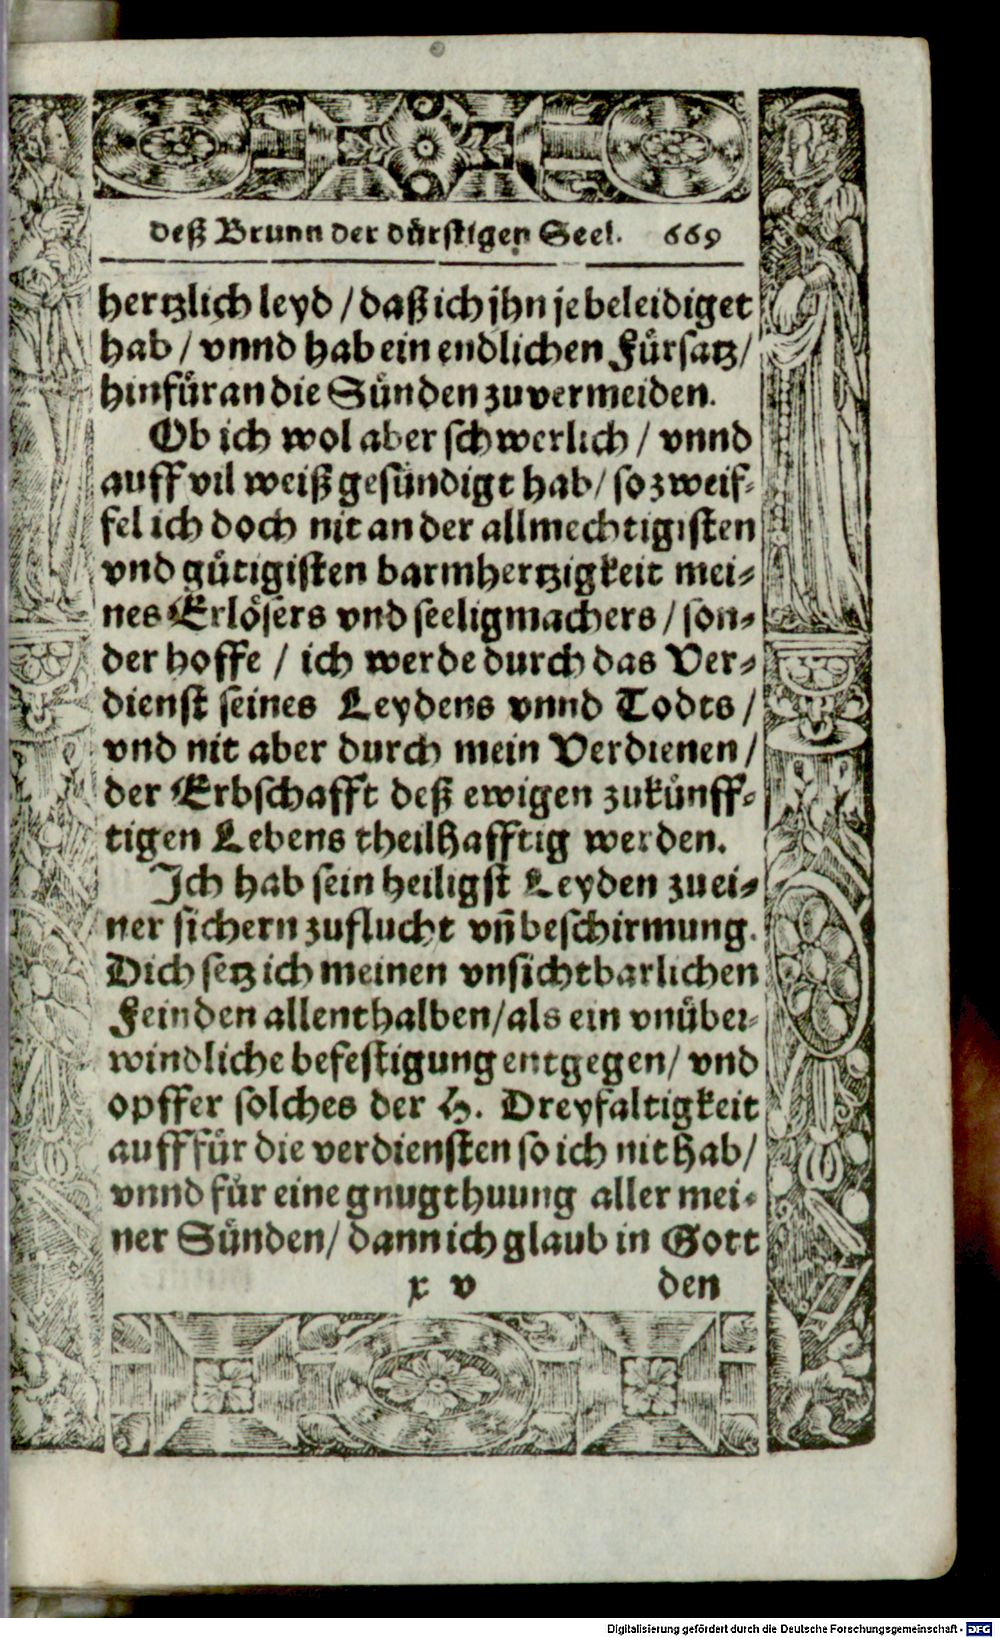 deß Brunn der dürstigen Seel. 669
hertzlich leyd / daß ich jhn je beleidiget
hab / vnnd hab ein endlichen Fürsatz /
hinfüran die Sünden zuvermeiden.
Ob ich wol aber schwerlich / vnnd
auff vil weiß gesündigt hab / so zweif-
fel ich doch nit an der allmechtigisten
vnd gütigisten barmhertzigkeit mei-
nes Erlösers vnd seeligmachers / son-
der hoffe / ich werde durch das Ver-
dienst seines Leydens vnnd Todts /
vnd nit aber durch mein Verdienen /
der Erbschafft deß ewigen zukünff-
tigen Lebens theilhafftig werden.
Ich hab sein heiligst Leyden zu ei-
ner sichern zuflucht vn̄ beschirmung.
Dich setz ich meinen vnsichtbarlichen
Feinden allenthalben / als ein vnüber-
windliche befestigung entgegen / vnd
opffer solches der H. Dreyfaltigkeit
auff für die verdiensten so ich nit hab /
vnnd für eine gnugthuung aller mei-
ner Sünden / dann ich glaub in Gott
x v den
Digitalisierung gefördert durch die Deutsche Forschungsgemeinschaft - DFG